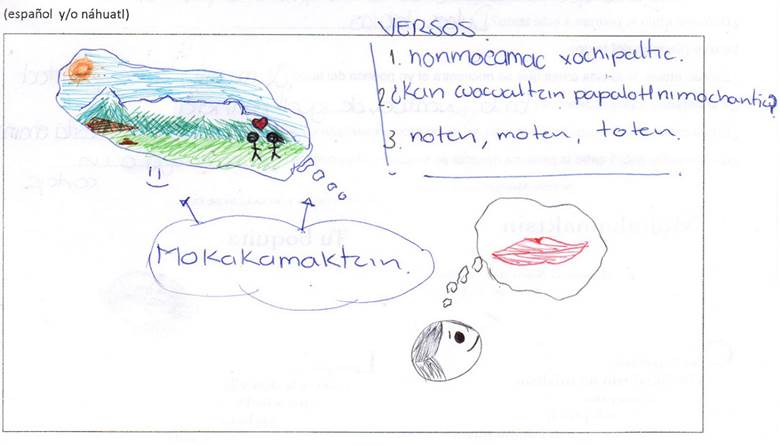 (español y/o náhuatl)
VERSOS
1. nonmocamac xochipaltic.
2. ¿Kan cuacualtzin papalotl nimochantia?
3. noten, moten, toten.
Mokakamaktzin.